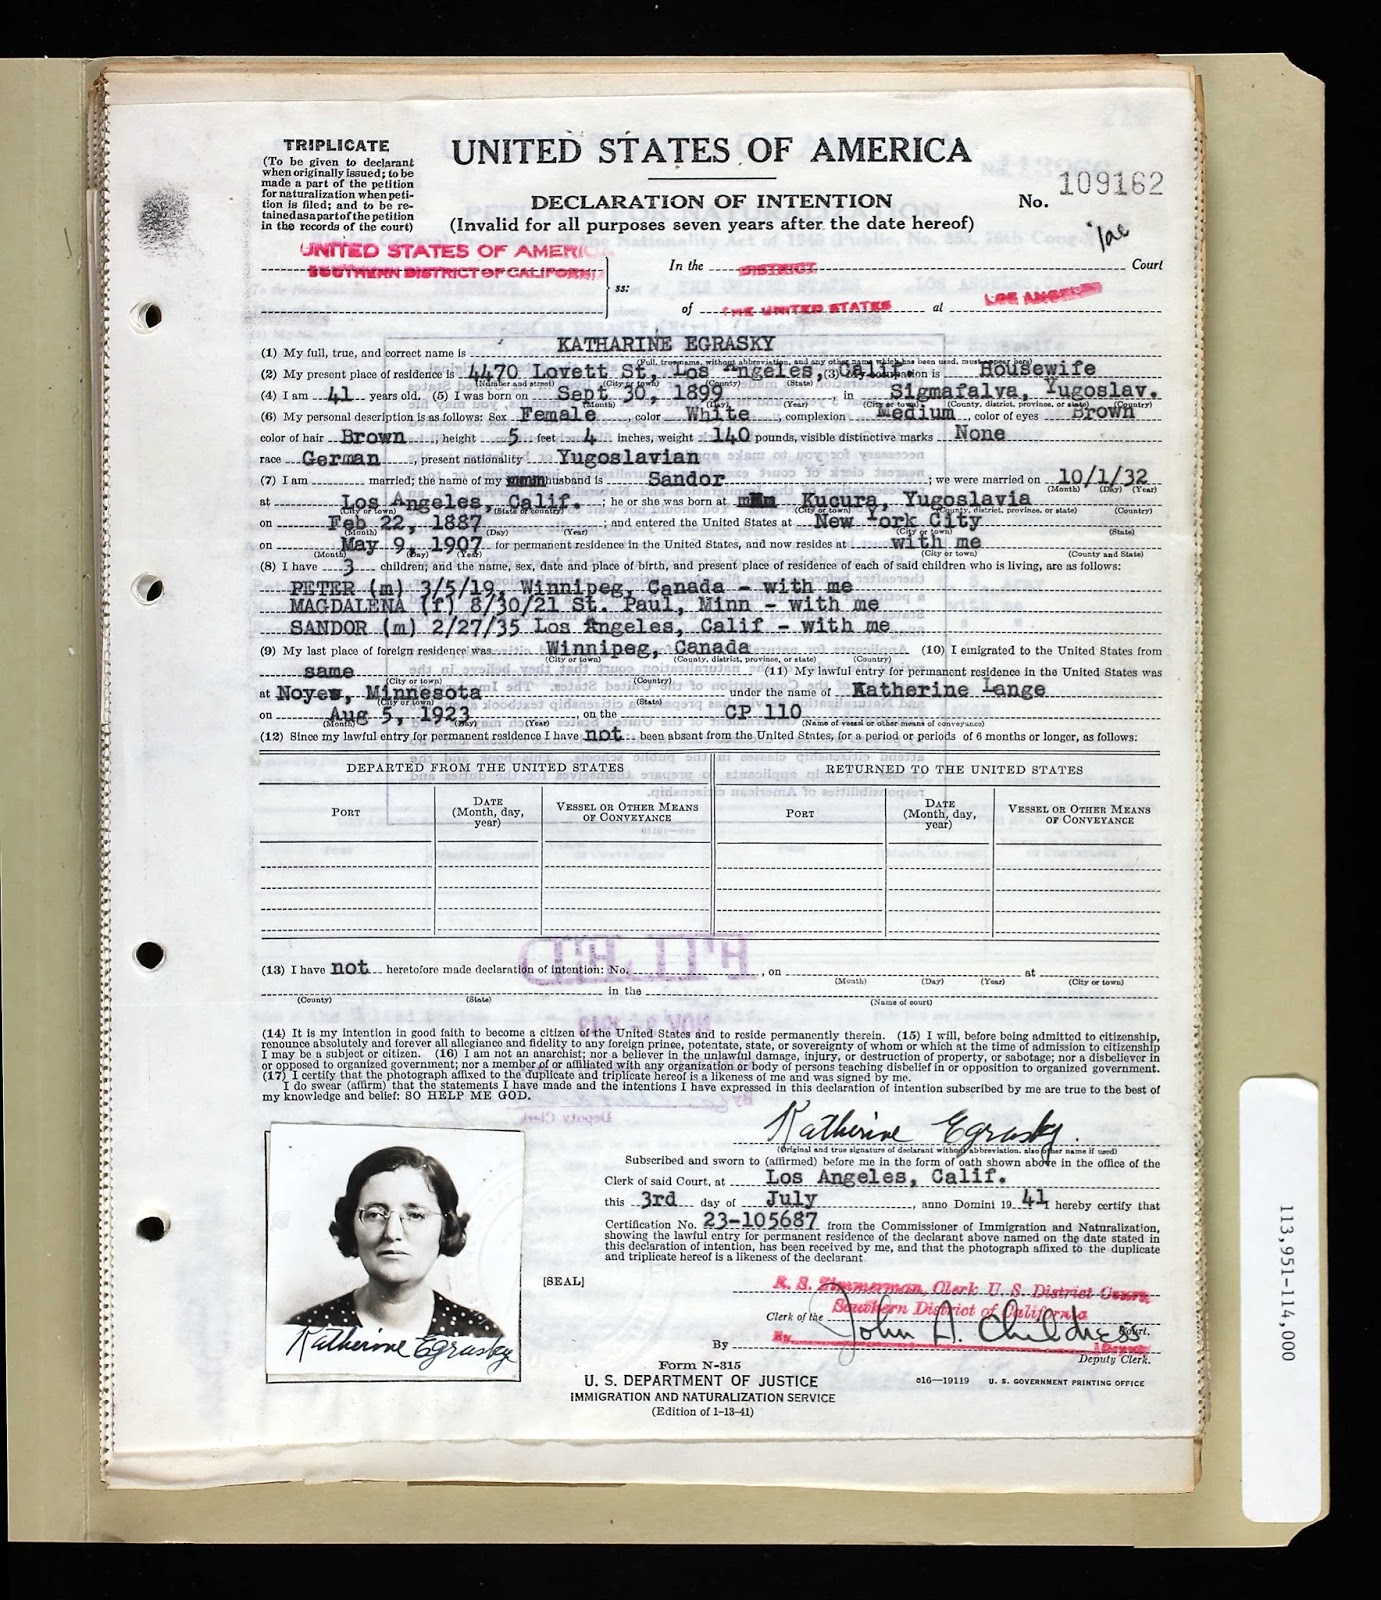 TRIPLICATE
(To be given to declarant
when originally issued; to be
made a part of the petition
for naturalization when peti-
tion is filed; and to be re-
tained as a part of the petition
in the records of the court)
UNITED STATES OF AMERICA
DECLARATION OF INTENTION
(Invalid for all purposes seven years after the date hereof)
No. 109162
UNITED STATES OF AMERICA
SOUTHERN DISTRICT OF CALIFORNIA
ss:
In the DISTRICT Court
of THE UNITED STATES at LOS ANGELES
(1) My full, true, and correct name is KATHARINE EGRASKY
(Full, true name, without abbreviation, and any other name which has been used, must appear here)
(2) My present place of residence is 4470 Lovett St, Los Angeles, Calif. (3) My occupation is Housewife
(Number and street) (City or town) (County) (State)
(4) I am 41 years old. (5) I was born on Sept 30, 1899 in Sigmafalva, Yugoslav.
(Month) (Day) (Year) (City or town) (County, district, province, or state) (Country)
(6) My personal description is as follows: Sex Female, color White, complexion Medium, color of eyes Brown
color of hair Brown, height 5 feet 4 inches, weight 140 pounds, visible distinctive marks None
race German, present nationality Yugoslavian
(7) I am married; the name of my husband is Sandor; we were married on 10/1/32
(Month) (Day) (Year)
at Los Angeles, Calif.; he or she was born at Kucura, Yugoslavia
(City or town) (State or country) (City or town) (County, district, province, or state) (Country)
on Feb 22, 1887; and entered the United States at New York City
(Month) (Day) (Year) (City or town) (State)
on May 9, 1907 for permanent residence in the United States, and now resides at with me
(Month) (Day) (Year) (City or town) (County and State)
(8) I have 3 children; and the name, sex, date and place of birth, and present place of residence of each of said children who is living, are as follows:
PETER (m) 3/5/19, Winnipeg, Canada - with me
MAGDALENA (f) 8/30/21 St. Paul, Minn - with me
SANDOR (m) 2/27/35 Los Angeles, Calif - with me
(9) My last place of foreign residence was Winnipeg, Canada (10) I emigrated to the United States from
(City or town) (County, district, province, or state) (Country)
same (11) My lawful entry for permanent residence in the United States was
(City or town) (Country)
at Noyes, Minnesota under the name of Katherine Lange
(City or town) (State)
on Aug 5, 1923, on the CP 110
(Month) (Day) (Year) (Name of vessel or other means of conveyance)
(12) Since my lawful entry for permanent residence I have not been absent from the United States, for a period or periods of 6 months or longer, as follows:
DEPARTED FROM THE UNITED STATES RETURNED TO THE UNITED STATES
PORT DATE (Month, day, year) VESSEL OR OTHER MEANS OF CONVEYANCE PORT DATE (Month, day, year) VESSEL OR OTHER MEANS OF CONVEYANCE
(13) I have not heretofore made declaration of intention: No. , on at
(Month) (Day) (Year) (City or town)
in the
(County) (State) (Name of court)
(14) It is my intention in good faith to become a citizen of the United States and to reside permanently therein. (15) I will, before being admitted to citizenship,
renounce absolutely and forever all allegiance and fidelity to any foreign prince, potentate, state, or sovereignty of whom or which at the time of admission to citizenship
I may be a subject or citizen. (16) I am not an anarchist; nor a believer in the unlawful damage, injury, or destruction of property, or sabotage; nor a disbeliever in
or opposed to organized government; nor a member of or affiliated with any organization or body of persons teaching disbelief in or opposition to organized government.
(17) I certify that the photograph affixed to the duplicate and triplicate hereof is a likeness of me and was signed by me.
I do swear (affirm) that the statements I have made and the intentions I have expressed in this declaration of intention subscribed by me are true to the best of
my knowledge and belief: SO HELP ME GOD.
Katherine Egrasky.
(Original and true signature of declarant without abbreviation, also other name if used)
Subscribed and sworn to (affirmed) before me in the form of oath shown above in the office of the
Clerk of said Court, at Los Angeles, Calif.
this 3rd day of July, anno Domini 1941 I hereby certify that
Certification No. 23-105687 from the Commissioner of Immigration and Naturalization,
showing the lawful entry for permanent residence of the declarant above named on the date stated in
this declaration of intention, has been received by me, and that the photograph affixed to the duplicate
and triplicate hereof is a likeness of the declarant
[SEAL]
R. S. Zimmerman, Clerk U. S. District Court,
Southern District of California
Clerk of the Court.
By John A. Childress
Deputy Clerk.
Katherine Egrasky
Form N-315
U. S. DEPARTMENT OF JUSTICE
IMMIGRATION AND NATURALIZATION SERVICE
(Edition of 1-13-41)
o16—19119 U. S. GOVERNMENT PRINTING OFFICE
113,951-114,000